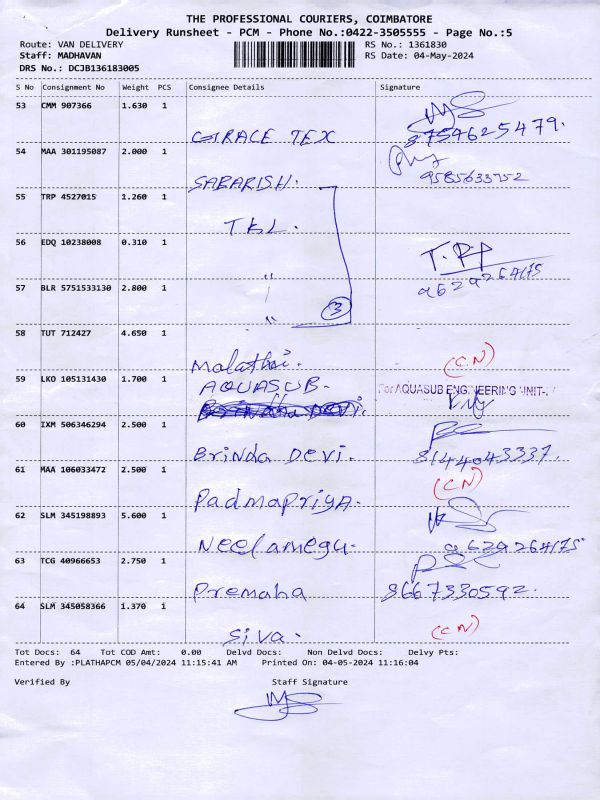 THE PROFESSIONAL COURIERS, COIMBATORE
Delivery Runsheet - PCM - Phone No.:0422-3505555 - Page No.:5
Route: VAN DELIVERY RS No.: 1361830
Staff: MADHAVAN RS Date: 04-May-2024
DRS No.: DCJB136183005
S No Consignment No Weight PCS Consignee Details Signature
53 CMM 907366 1.630 1
GRACE TEX 8754625479.
54 MAA 301195087 2.000 1
SABARISH. 9585633752
55 TRP 4527015 1.260 1
TKL.
56 EDQ 10238008 0.310 1
" 9629264175
57 BLR 5751533130 2.800 1
" 3
58 TUT 712427 4.650 1
Malathi. (CN)
59 LKO 105131430 1.700 1
AQUASUB. For AQUASUB ENGINEERING UNIT-
60 IXM 506346294 2.500 1
Brinda Devi. 8144043337.
61 MAA 106033472 2.500 1 (CN)
Padmapriya.
62 SLM 345198893 5.600 1
Neelamegu. 9629264175
63 TCG 40966653 2.750 1
Premaha 8667330592.
64 SLM 345058366 1.370 1
Siva. (CN)
Tot Docs: 64 Tot COD Amt: 0.00 Delvd Docs: Non Delvd Docs: Delvy Pts:
Entered By :PLATHAPCM 05/04/2024 11:15:41 AM Printed On: 04-05-2024 11:16:04
Verified By Staff Signature